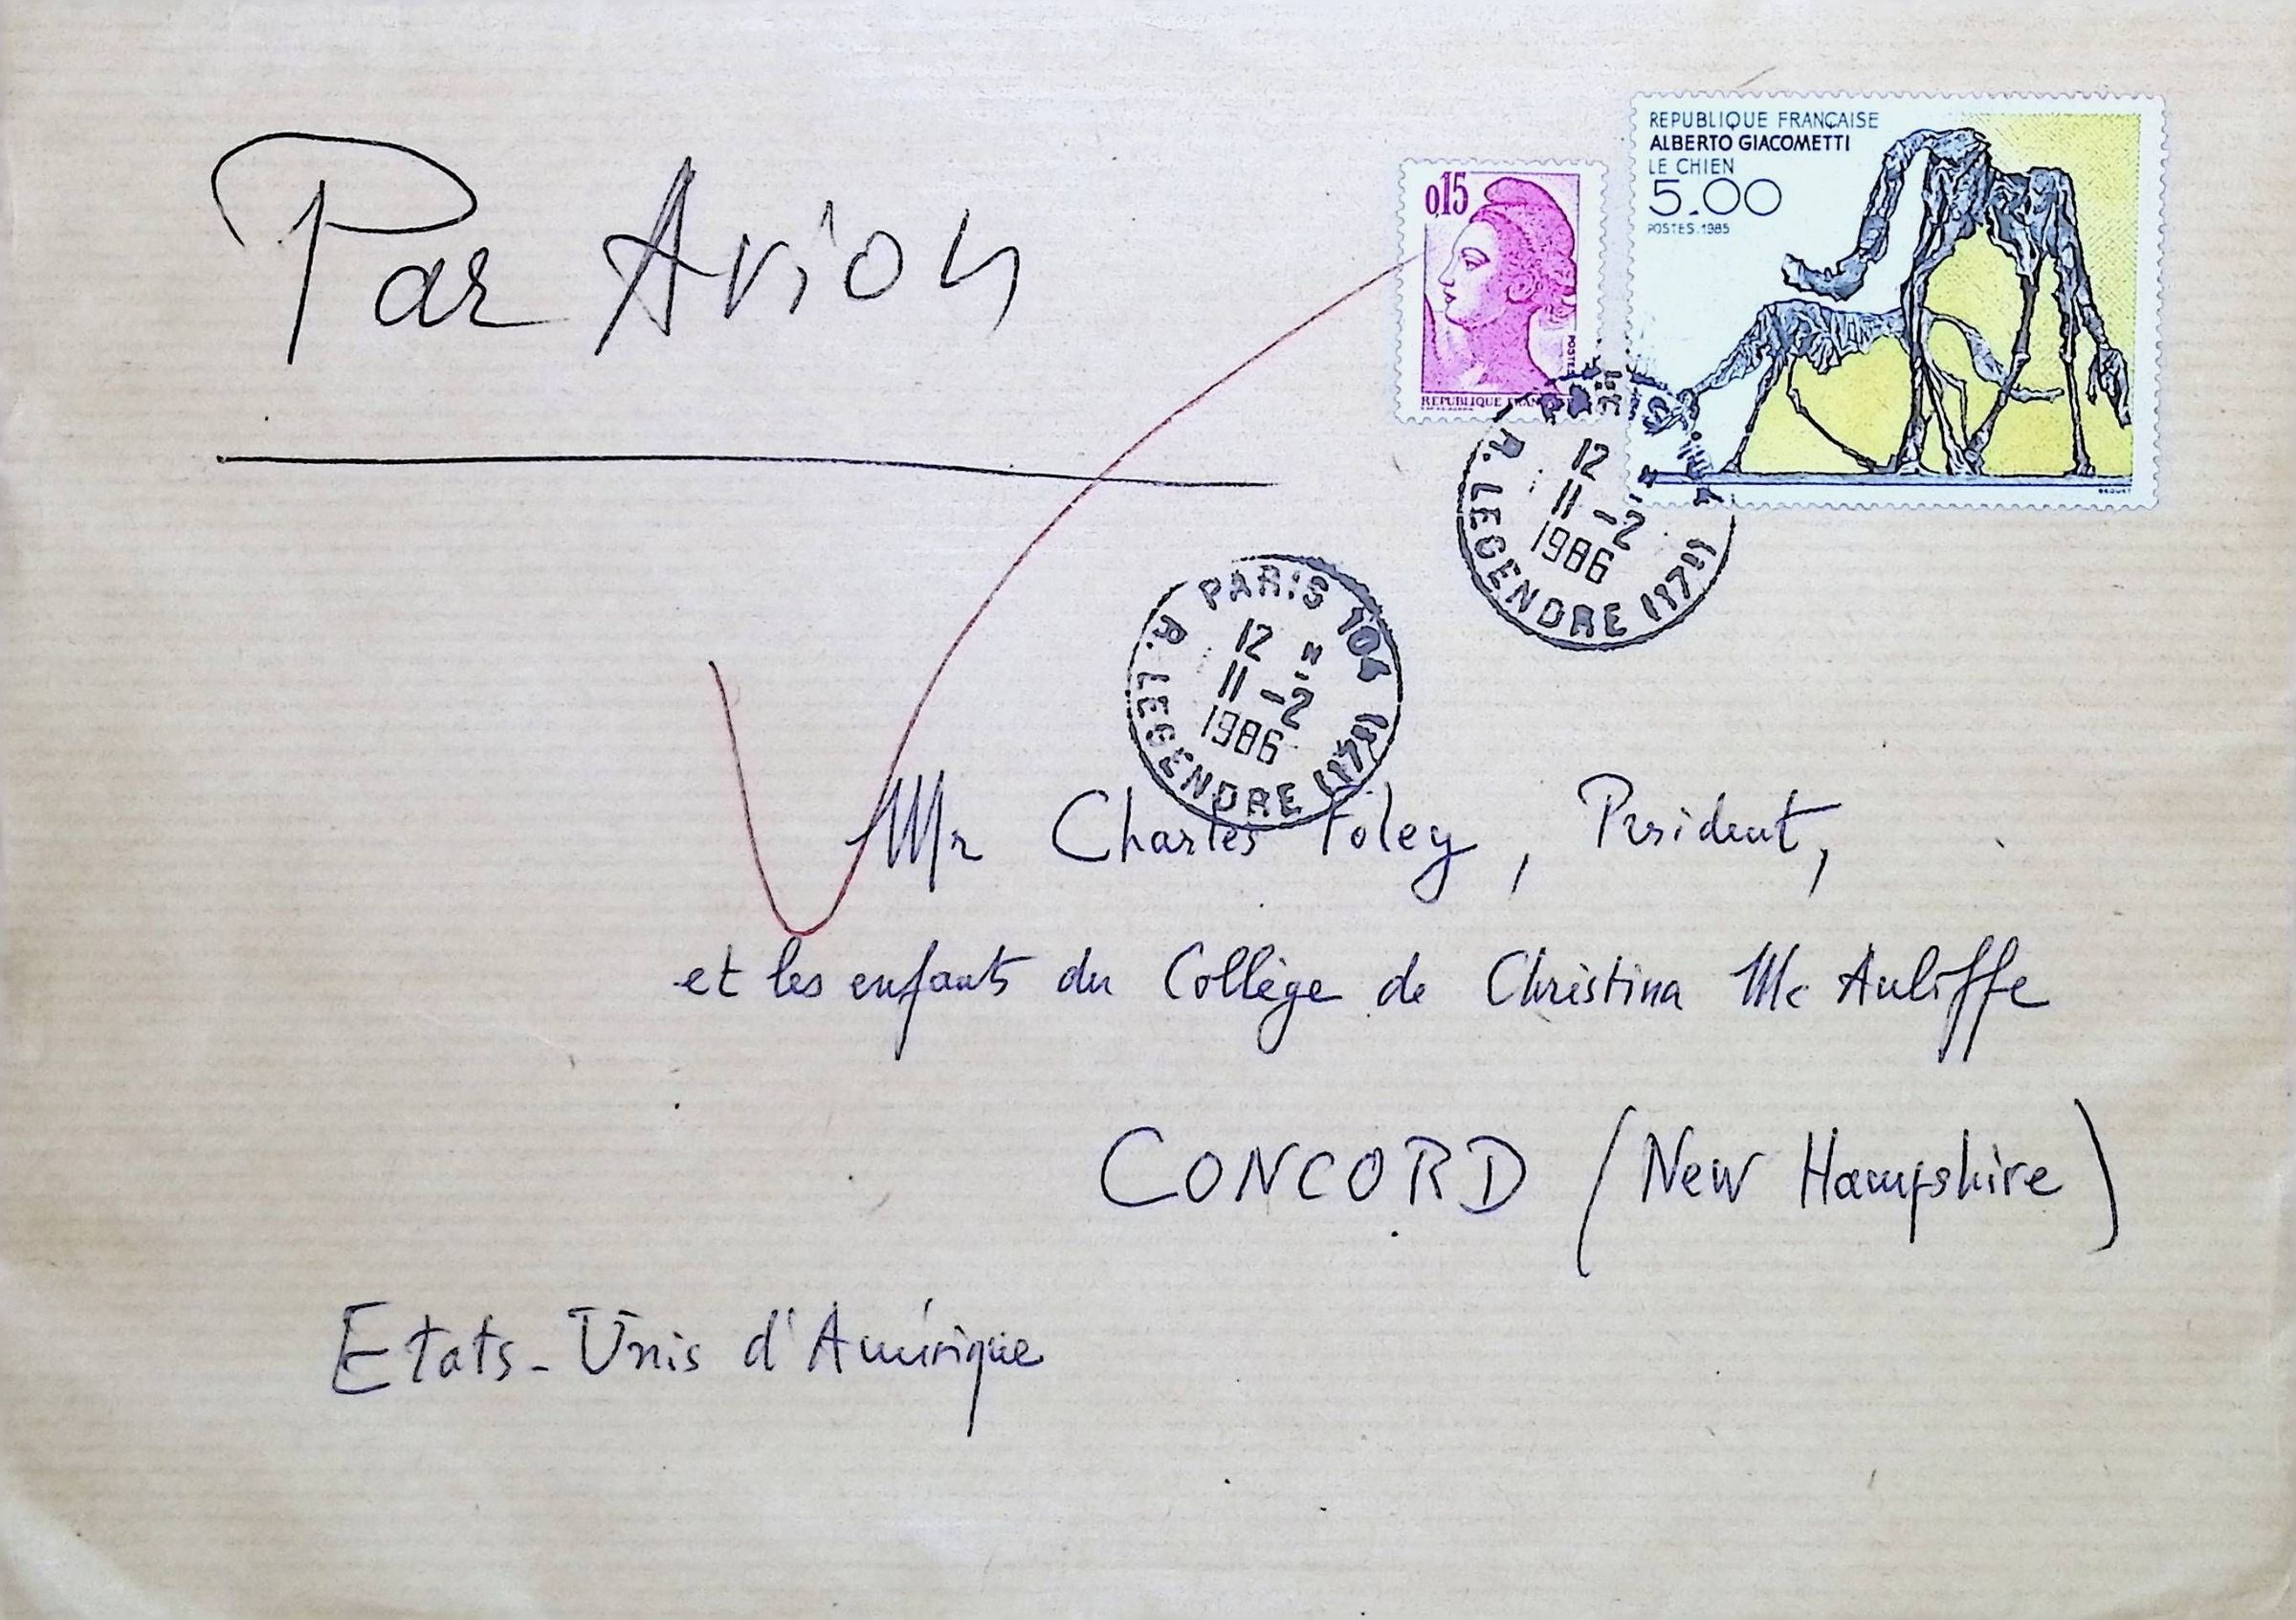 REPUBLIQUE FRANÇAISE
ALBERTO GIACOMETTI
LE CHIEN
5.00
POSTES. 1985
0,15
POSTES
REPUBLIQUE FRAN
Par Avion
PARIS
12 H
11 -2
1986
R. LEGENDRE (17E)
PARIS 104
12 H
11 -2
1986
R. LEGENDRE (17E)
Mr Charles Foley, Président,
et les enfants du Collège de Christina Mc Auliffe
CONCORD (New Hampshire)
Etats-Unis d'Amérique